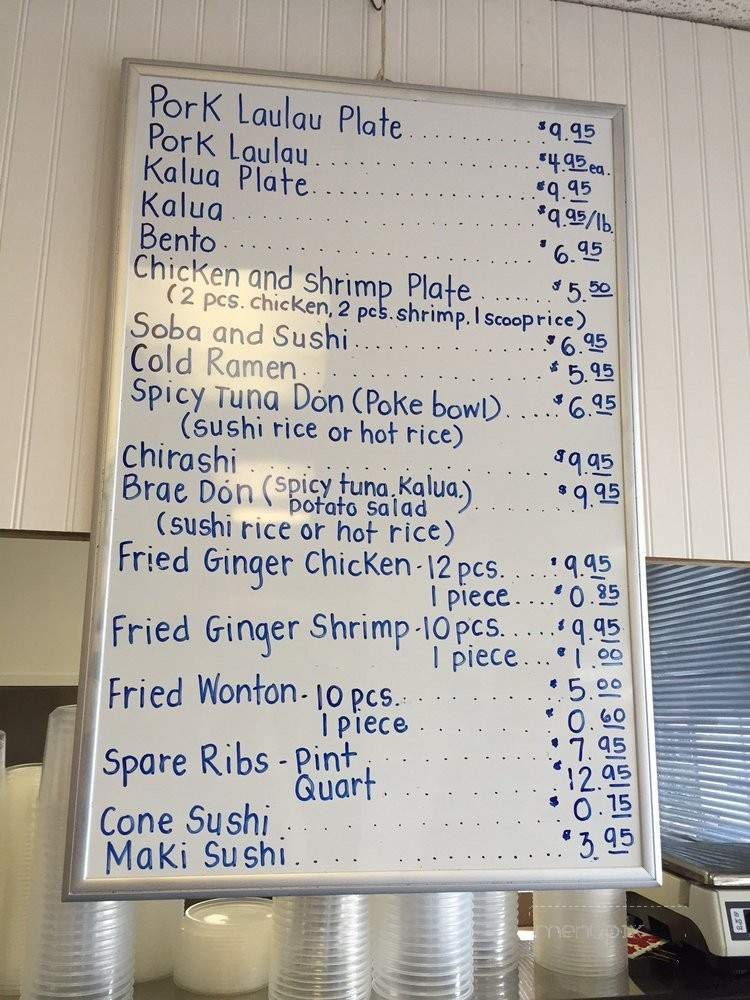 Pork Laulau Plate........... $9.95
Pork Laulau................. $4.95 ea.
Kalua Plate................. $9.95
Kalua....................... $9.95/lb.
Bento....................... $6.95
Chicken and Shrimp Plate ....... $5.50
(2 pcs. chicken, 2 pcs. shrimp, 1 scoop rice)
Soba and Sushi.............. $6.95
Cold Ramen.................. $5.95
Spicy Tuna Don (Poke bowl)..... $6.95
(sushi rice or hot rice)
Chirashi.................... $9.95
Brae Don (spicy tuna, Kalua,
potato salad)......... $9.95
(sushi rice or hot rice)
Fried Ginger Chicken-12 pcs..... $9.95
1 piece.... $0.85
Fried Ginger Shrimp-10 pcs...... $9.95
1 piece... $1.00
Fried Wonton-10 pcs........... $5.00
1 piece.......... $0.60
Spare Ribs - Pint............ $7.95
Quart........... $12.95
Cone Sushi.................. $0.75
Maki Sushi.................. $3.95
menupix